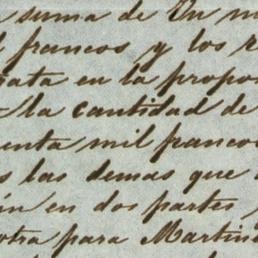 suma de Un m
francos y los r
ata en la propo
la cantidad de
enta mil franco
s las demas que
ín en dos partes y
otra para Martin